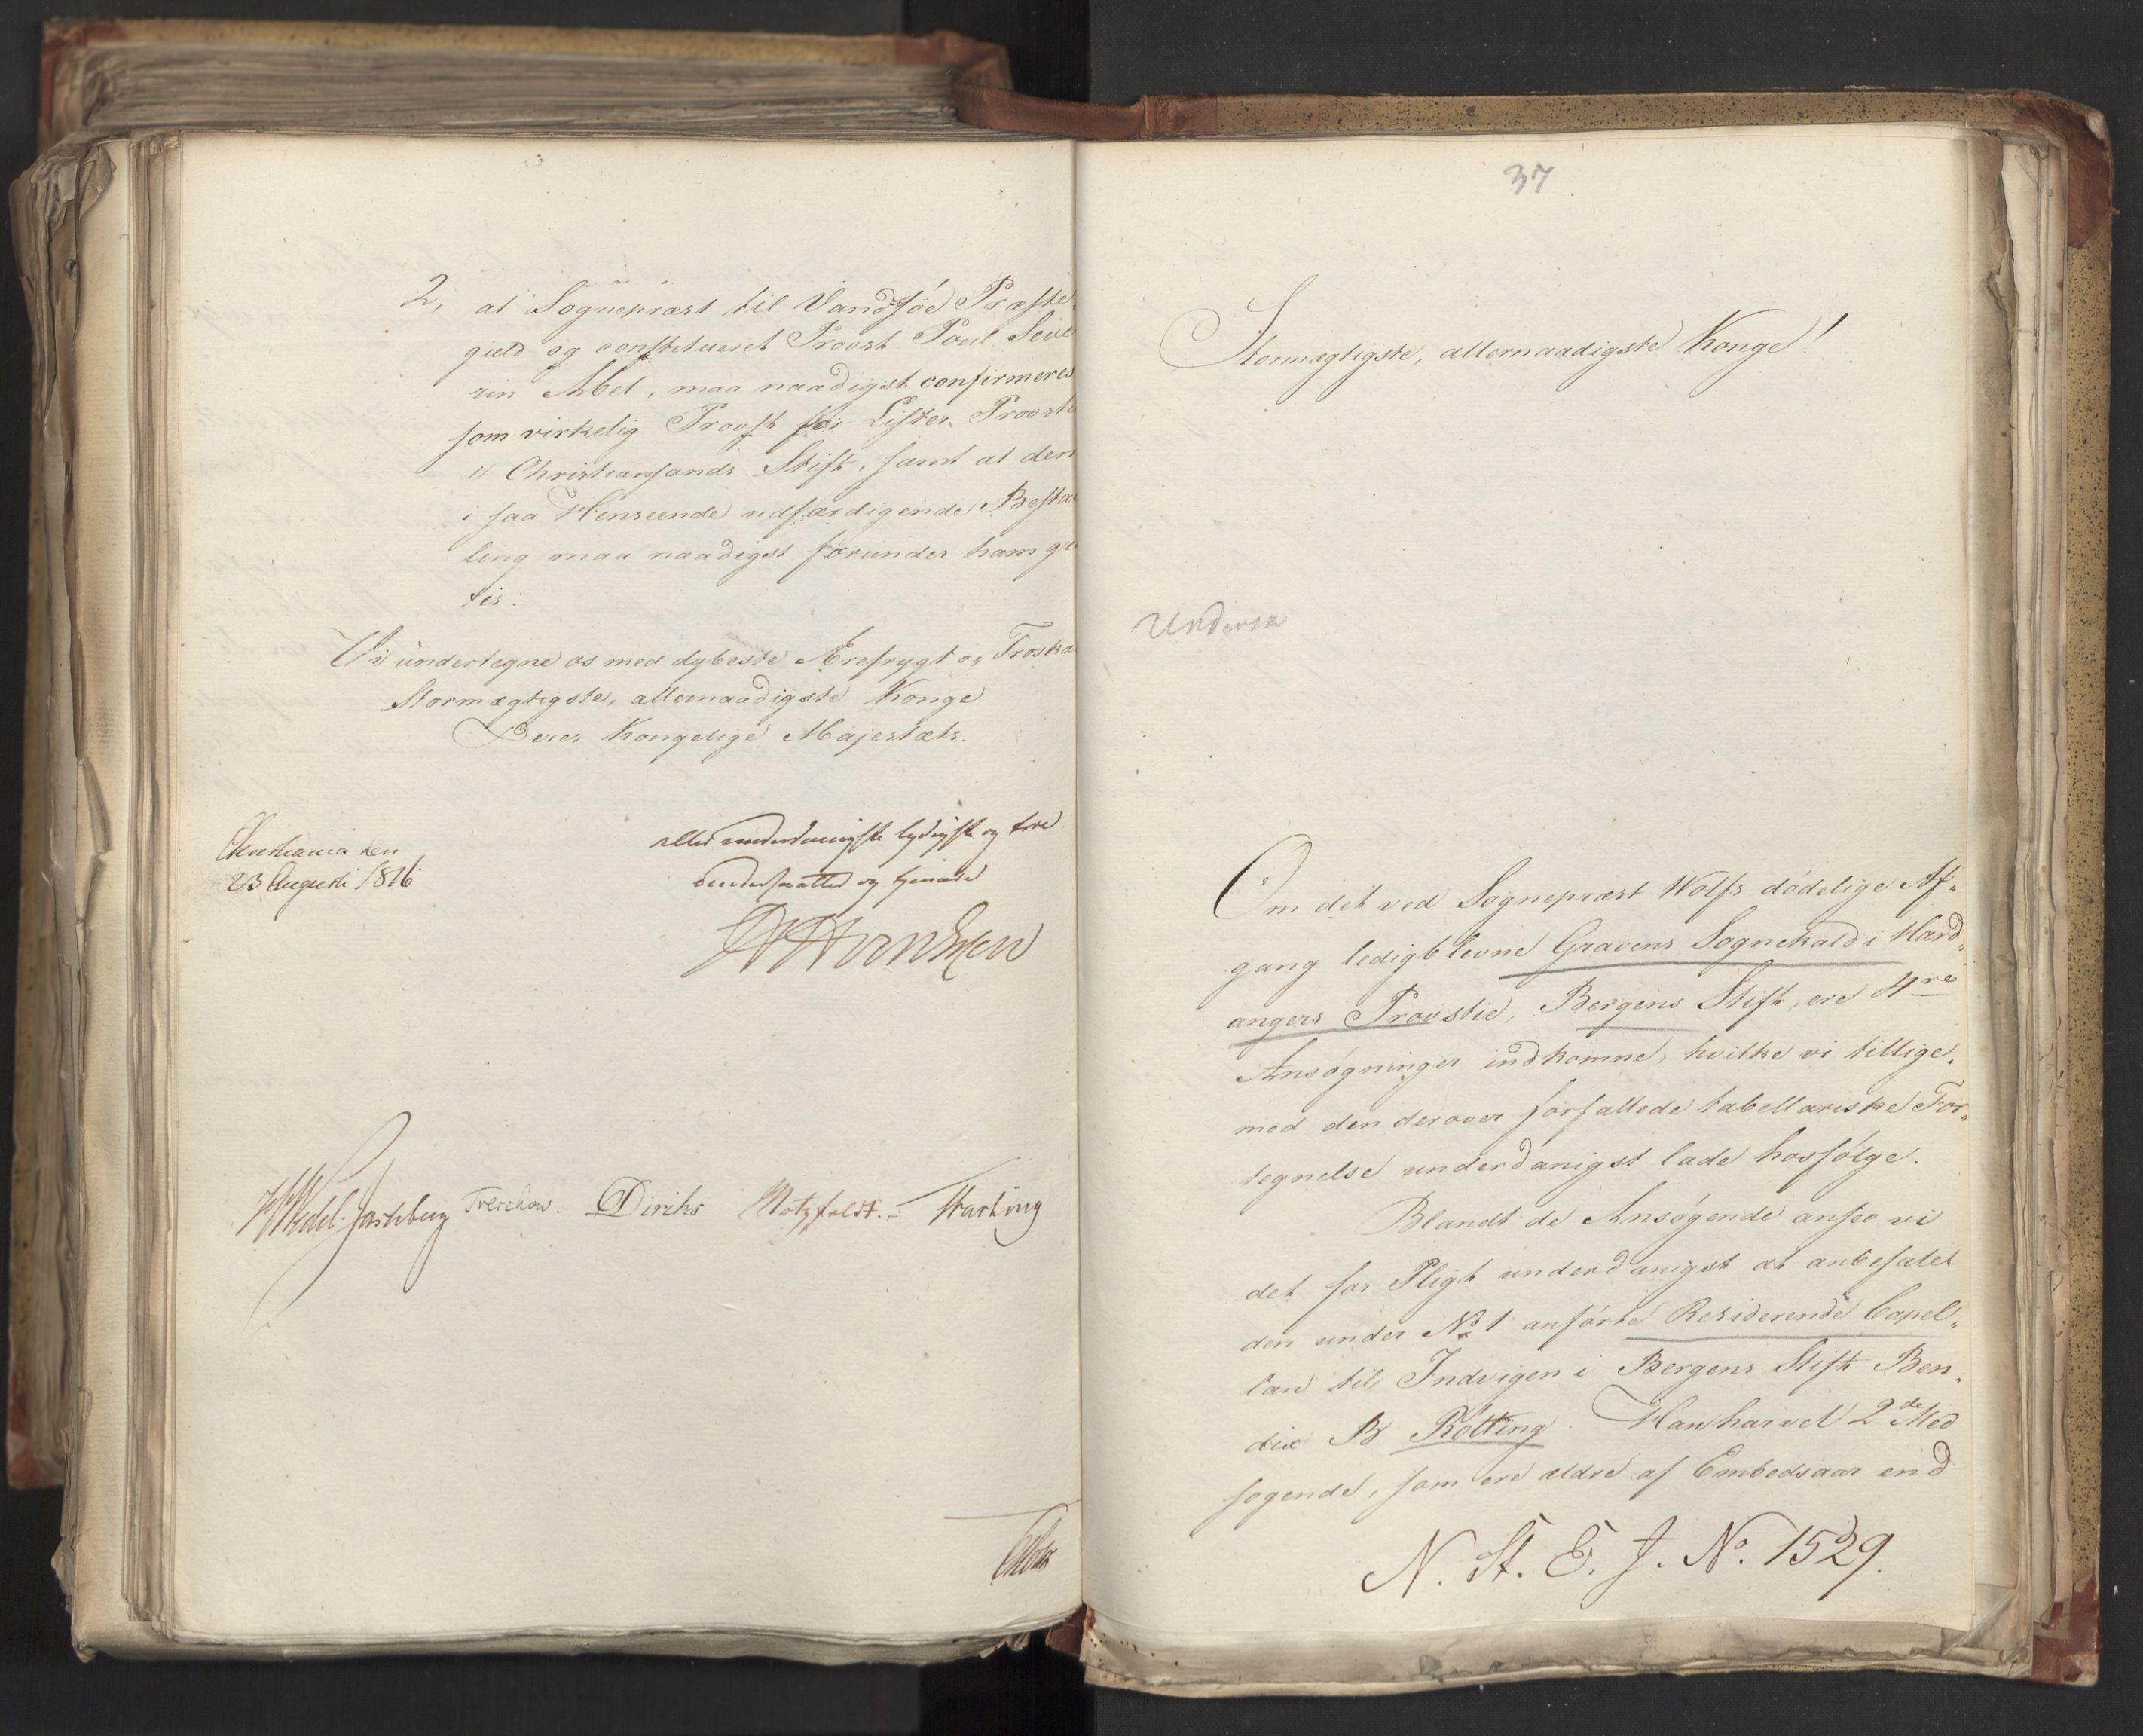 2, at Sognepræst til Vandsøe Præste
gield og constitueret Provst Poul Seve
rin Abel, maa naadigst confirmeres
som virkelig Provst for Lister Provstie
i Christiansands Stift, samt at den
i saa Henseende udfærdigende Bestal
ling maa naadigst forundes ham gra
tis.
Vi undertegne os med dybeste Ærefrygt og Troska
Stormægtigste, allernaadigste Konge
Deres Kongelige Majestæts.
allerunderdanigste lydigste og troe
undersaatter og tjenere
Christiania den
23 Augusti 1816
Wedel-Jarlsberg Treschow. Diriks Motzfeldt. - Harting
37
Stormægtigste, allernaadigste Konge!
Om det ved Sognepræst Wolfs dødelige Af-
gang ledigblevne Gravens Sognekald i Hard-
angers Provstie, Bergens Stift, ere 4re
Ansøgninger indkomne, hvilke vi tillige-
med den derover forfattede tabellariske For-
tegnelse underdanigst lade hosfølge.
Blandt de Ansøgende ansee vi
det for Pligt underdanigst at anbefale
den under No 1 anførte Residerende Capel-
lan til Indvigen i Bergens Stift Ben-
dix B Rötting. Han har vel 2de Med
søgende, som ere ældre af Embedsaar end
N. St. E. J. No. 1529.